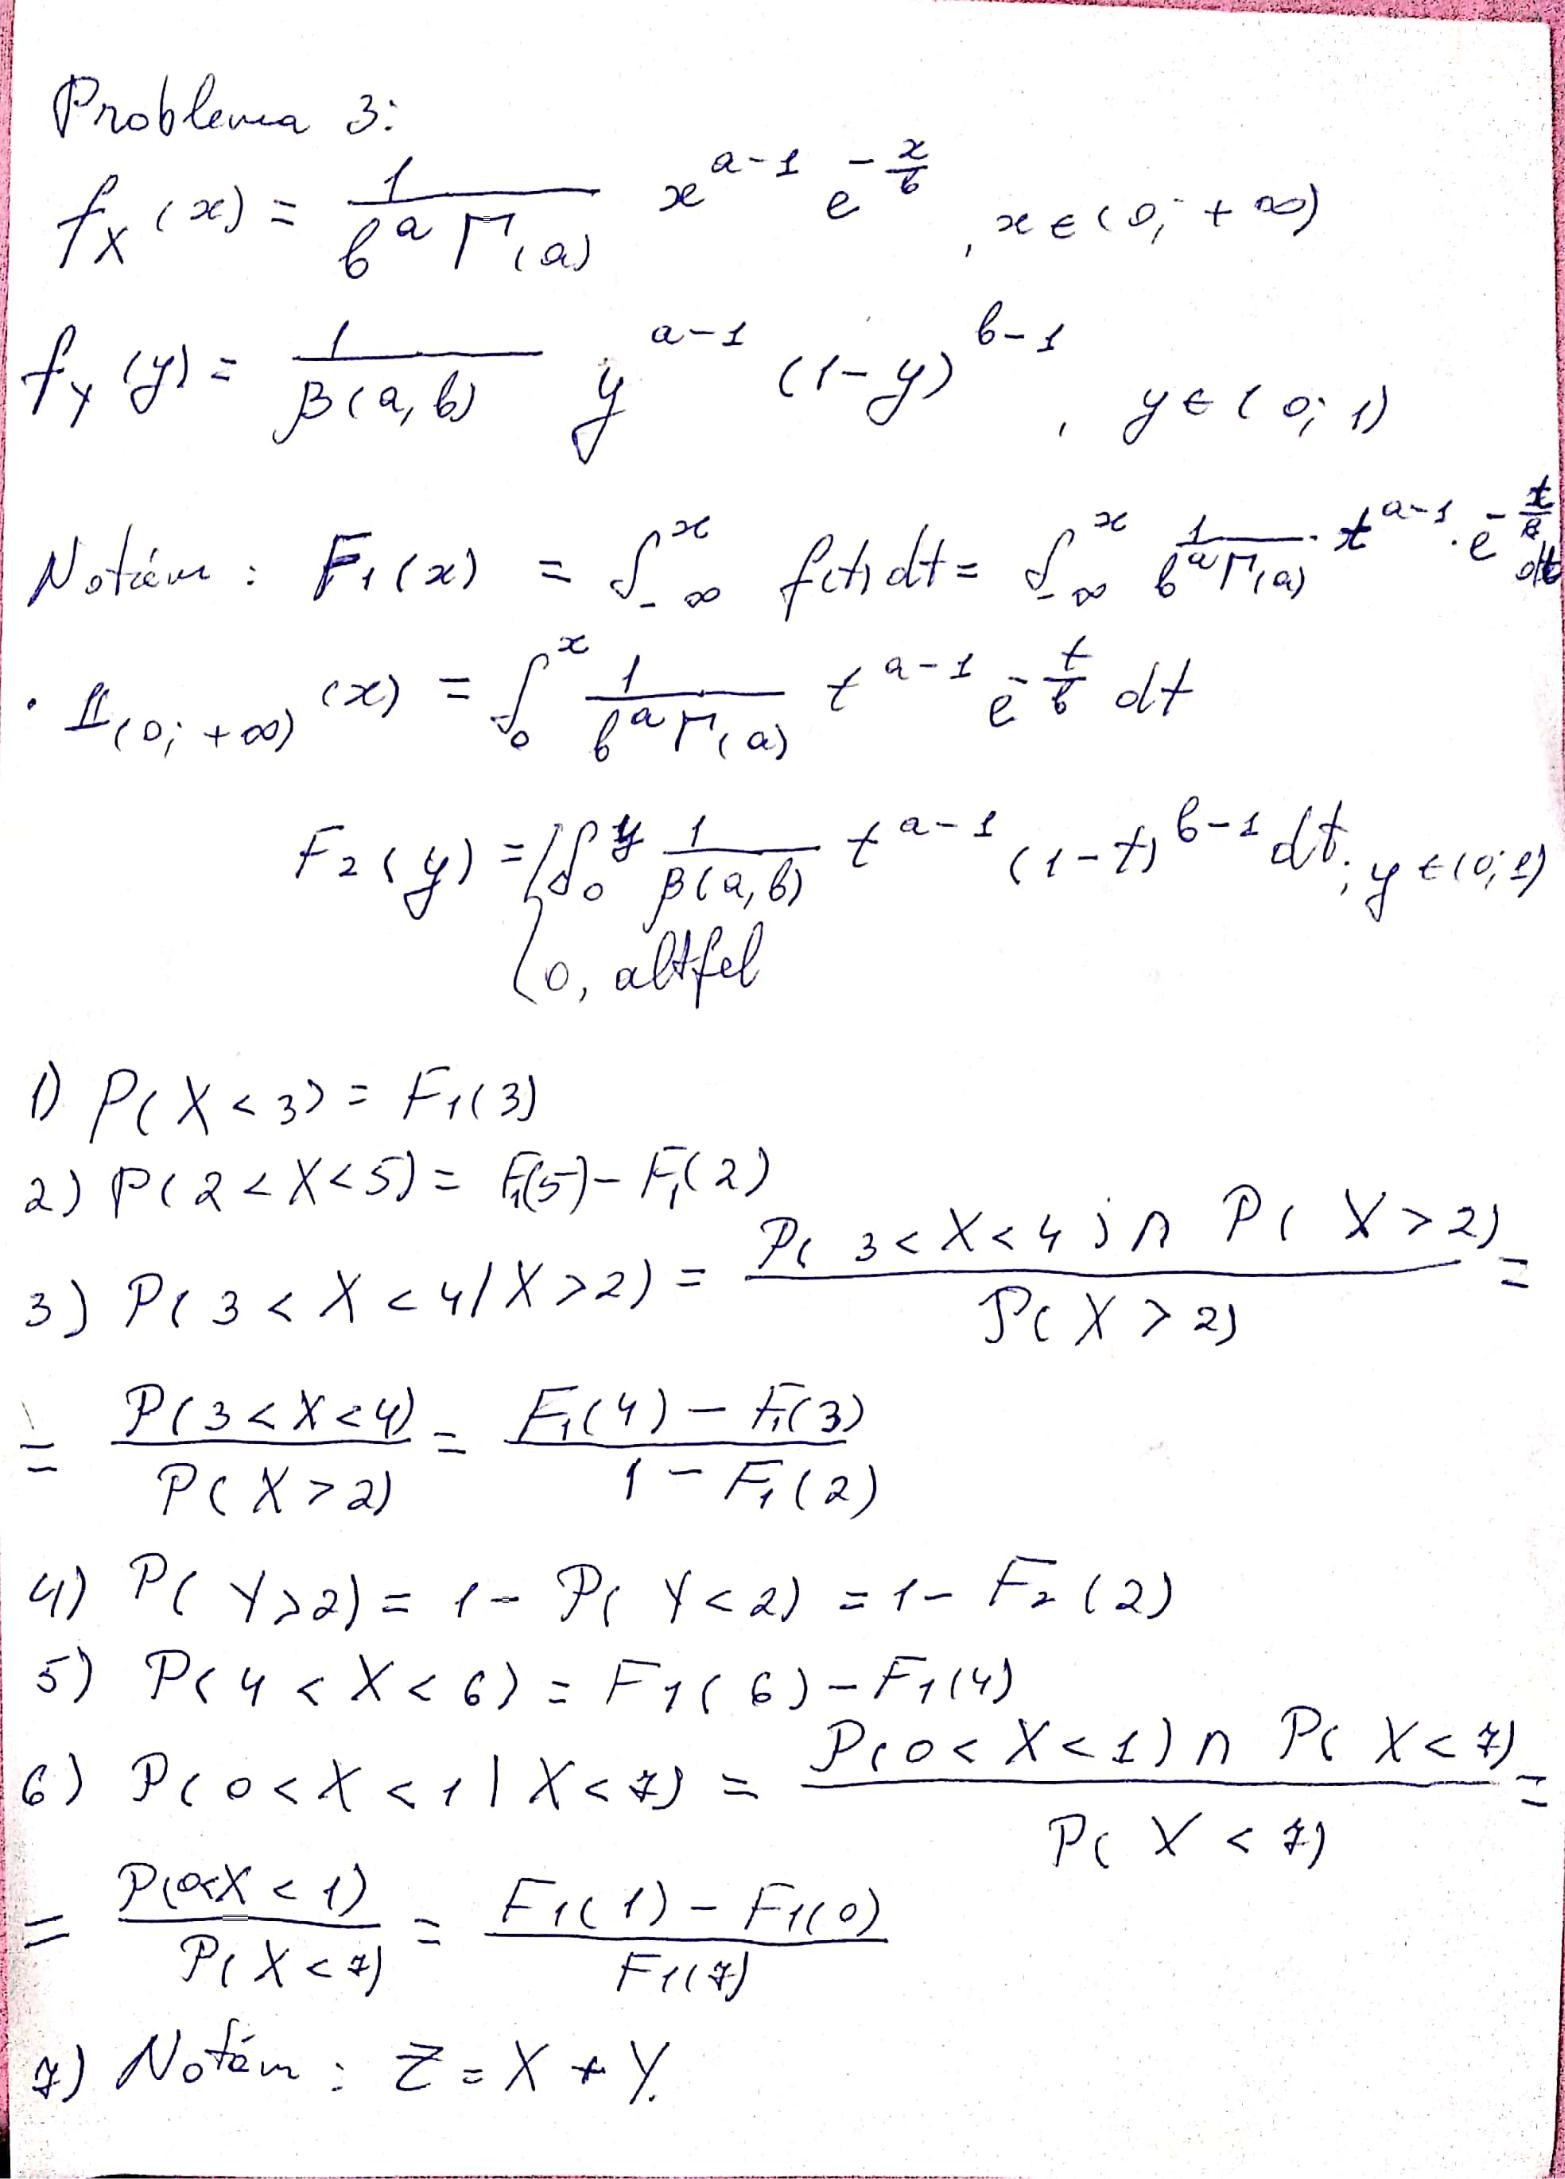 Problema 3:
f_X(x) = \frac{1}{b^a Γ(a)} x^{a-1} e^{-\frac{x}{b}}, x ∈ (0; +∞)
f_Y(y) = \frac{1}{β(a,b)} y^{a-1} (1-y)^{b-1}, y ∈ (0; 1)
Notăm: F_1(x) = ∫_{-∞}^{x} f(t) dt = ∫_{-∞}^{x} \frac{1}{b^a Γ(a)} · t^{a-1} · e^{-\frac{t}{b}} dt
· 𝟙_{(0; +∞)}(x) = ∫_0^x \frac{1}{b^a Γ(a)} t^{a-1} e^{-\frac{t}{b}} dt
F_2(y) = { ∫_0^y \frac{1}{β(a,b)} t^{a-1} (1-t)^{b-1} dt, y ∈ (0; 1)
0, altfel
1) P(X < 3) = F_1(3)
2) P(2 < X < 5) = F_1(5) - F_1(2)
3) P(3 < X < 4 | X > 2) = \frac{P(3 < X < 4) ∩ P(X > 2)}{P(X > 2)} =
= \frac{P(3 < X < 4)}{P(X > 2)} = \frac{F_1(4) - F_1(3)}{1 - F_1(2)}
4) P(Y > 2) = 1 - P(Y < 2) = 1 - F_2(2)
5) P(4 < X < 6) = F_1(6) - F_1(4)
6) P(0 < X < 1 | X < 7) = \frac{P(0 < X < 1) ∩ P(X < 7)}{P(X < 7)} =
= \frac{P(0 < X < 1)}{P(X < 7)} = \frac{F_1(1) - F_1(0)}{F_1(7)}
7) Notăm: Z = X + Y.